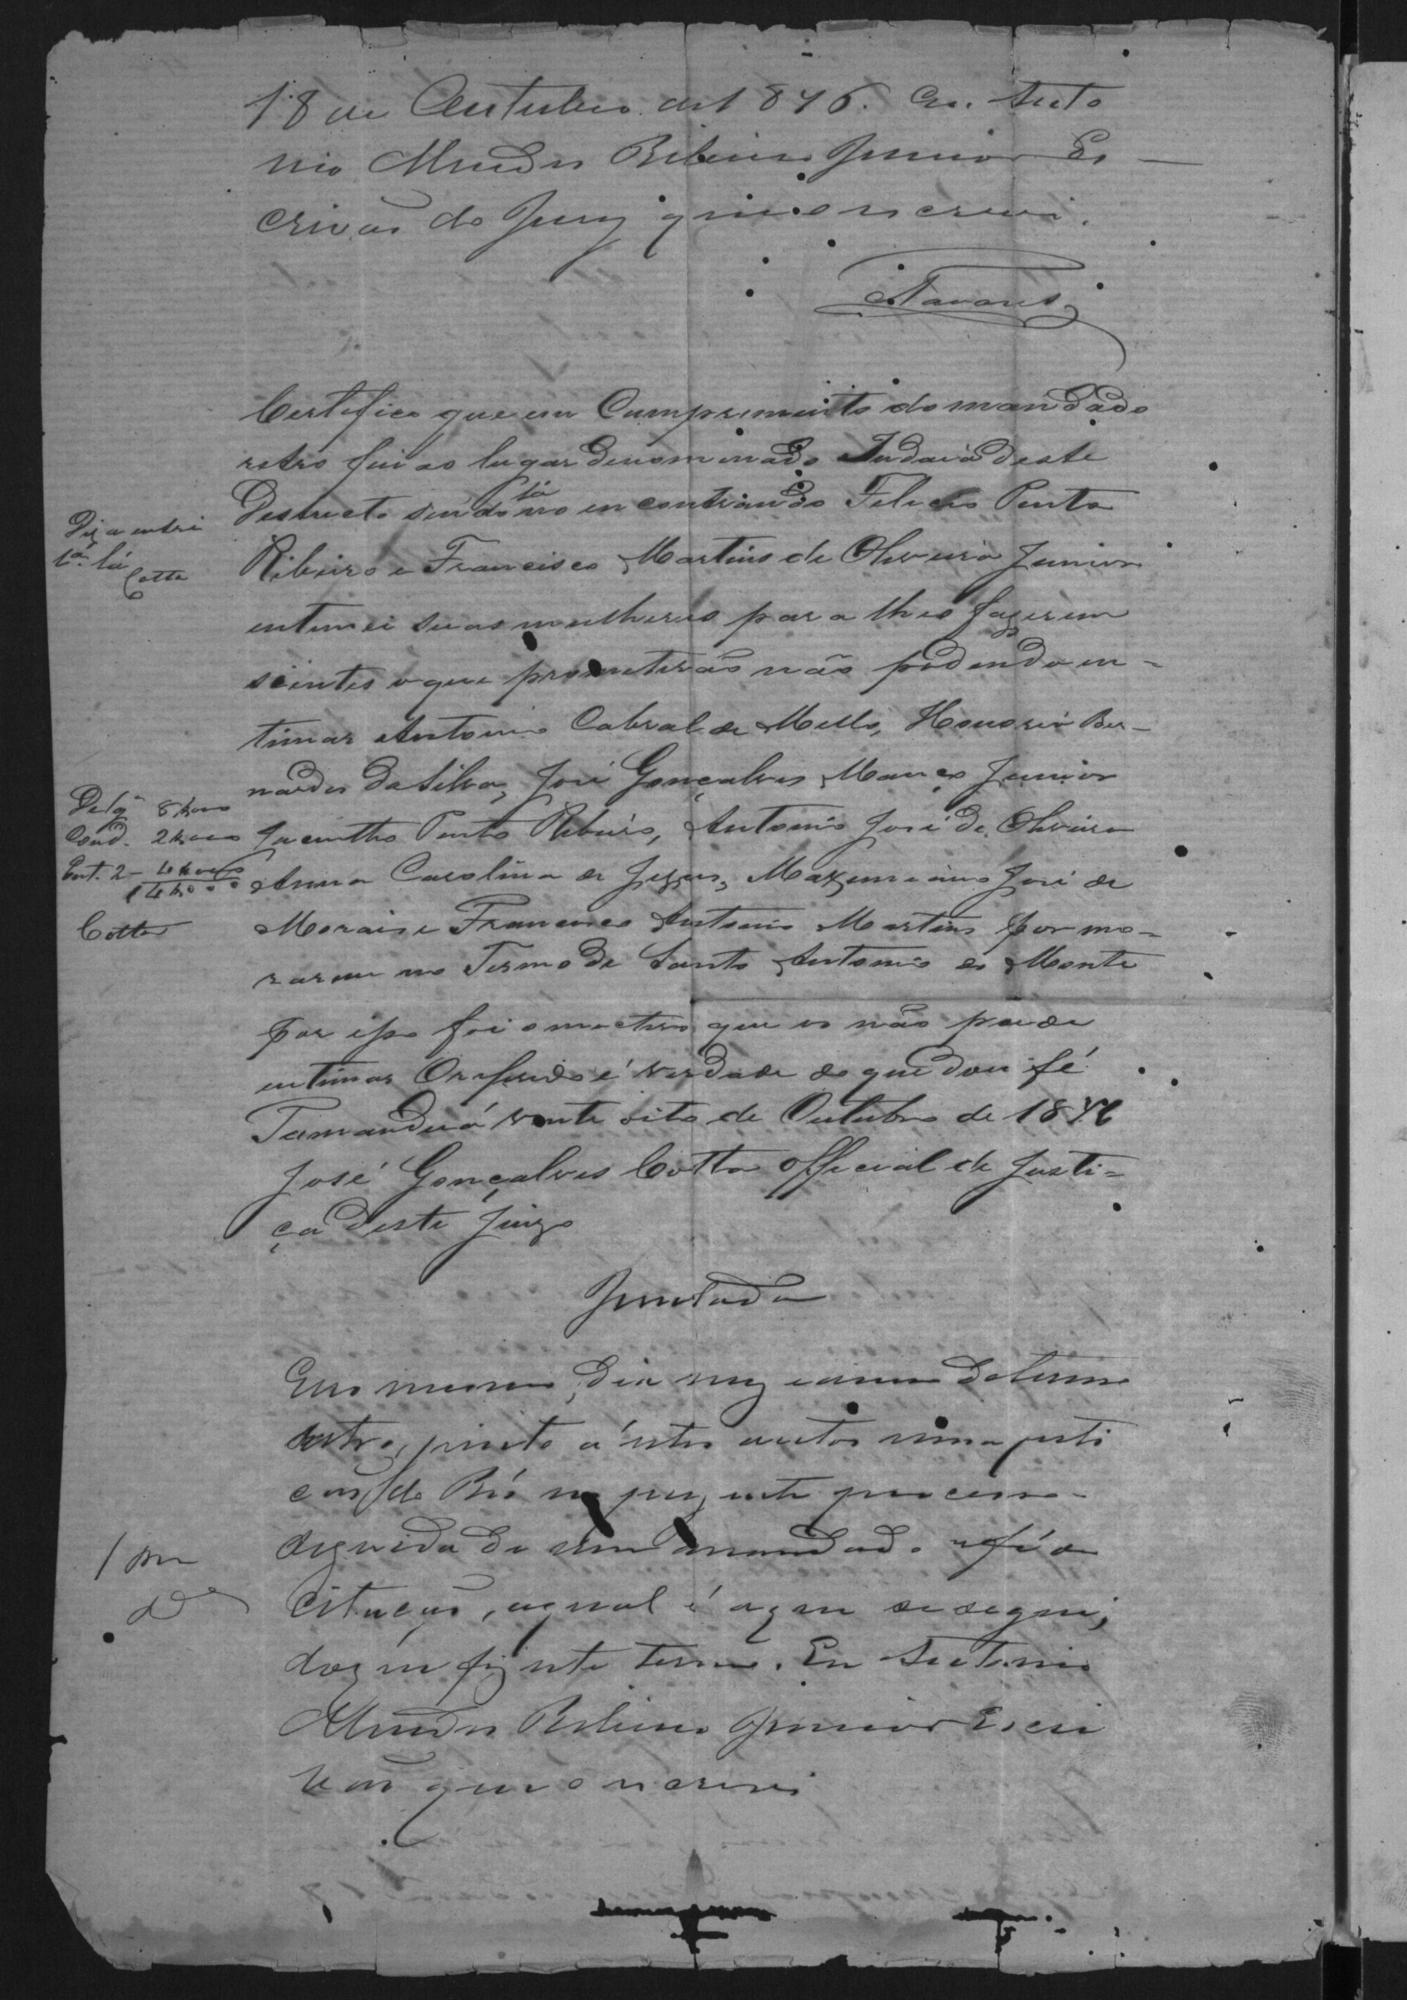 18 de Outubro de 1876. Eu Anto
nio Mendes Ribeiro Junior Es
crivão do Jury que o escrevi.
Tavares
Certifico que em Cumprimento do mandado
retro fui ao lugar denominado Indaiá deste
Destrecto sendo lá não encontrando Felicio Pinto
Ribeiro e Francisco Martins de Oliveira Junior
entimei suas mulheres para lhes fazerem
scientes o que prometerão não podendo en-
timar Antonio Cabral de Mello, Honorio Ber-
nardes da Silva, José Gonçalves Junior
Jacintho Pinto Ribeiro, Antonio José de Oliveira
Anna Carolina de Jezus, Maximiano José de
Morais e Francisco Antonio Martins por mo-
rarem no Termo de Santo Antonio do Monte
por isso foi o mutivo que os não pude
entimar O referido é verdade do que dou fé
Tamanduá vinte oito de Outubro de 1876
José Gonçalves Cotta official de Justi-
ça deste Juizo
Diz a entre
lª lá
Cotta
Delgª 8000
Cond. 2000
Ent. 2- 4000
14000
Cotta
Juntada
Em mesmo dia mez e anno do termo
retro, junto á estes autos uma peti
ção do Réo no prezente processo
seguida de um mandado e fé de
Citação, a qual é a que se segue;
do que fiz este termo. Eu Antonio
Mendes Ribeiro Junior Escri
vão que o escrevi